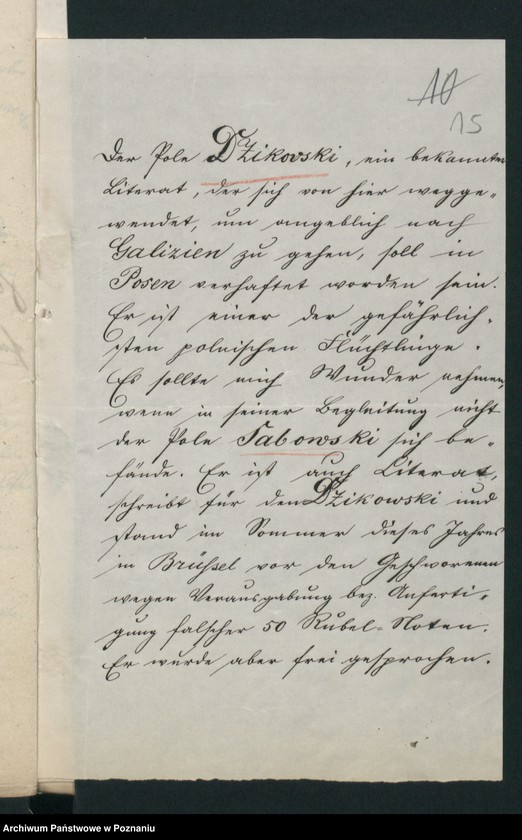 10
15
Der Pole Dzikovski, ein bekannter
Literat, der sich von hier wegge-
wendet, um angeblich nach
Galizien zu gehen, soll in
Posen verhaftet worden sein.
Er ist einer der gefährlich-
sten polnischen Flüchtlinge.
Es sollte mich Wunder nehmen,
wenn in seiner Begleitung nicht
der Pole Sabowski sich be-
fände. Er ist auch Literat,
schreibt für den Dzikowski und
stand im Sommer dieses Jahres
in Brüssel vor den Geschworenen
wegen Verausgabung bez. Anferti-
gung falscher 50 Rubel-Noten.
Er wurde aber frei gesprochen.
Archiwum Państwowe w Poznaniu